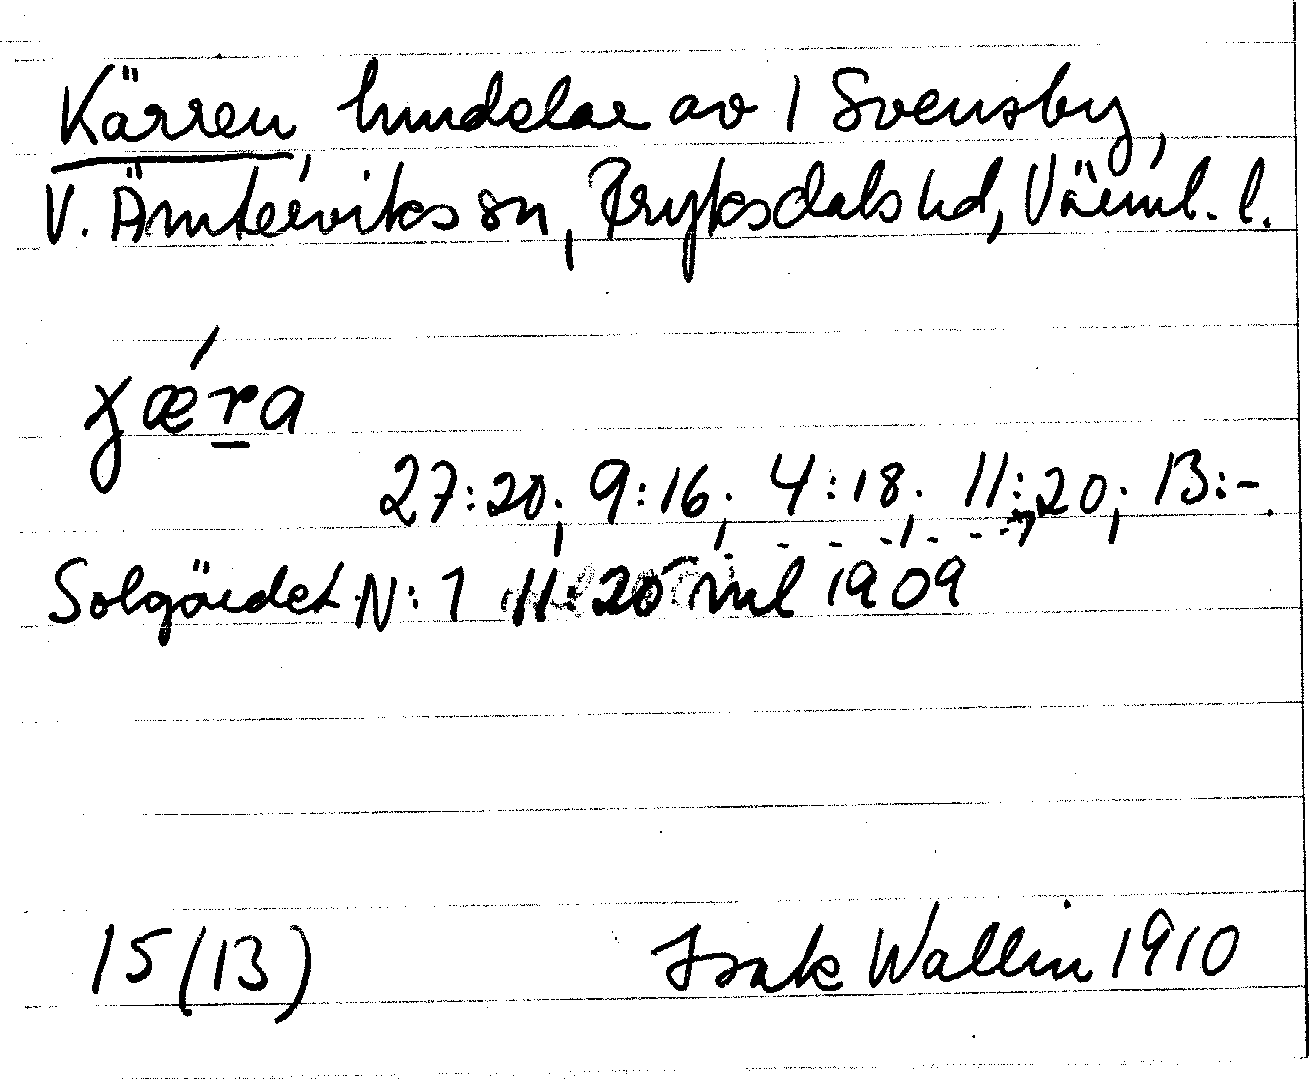 Kärren, hmdelar av 1 Svensby,
V. Ämterviks sn, Fryksdals hd, Värml. l.
χǽra
27:20; 9:16; 4:18; 11:20; 13:-.
Solgärdet N:1 11:20 ml 1909
15 (13) Isak Wallin 1910